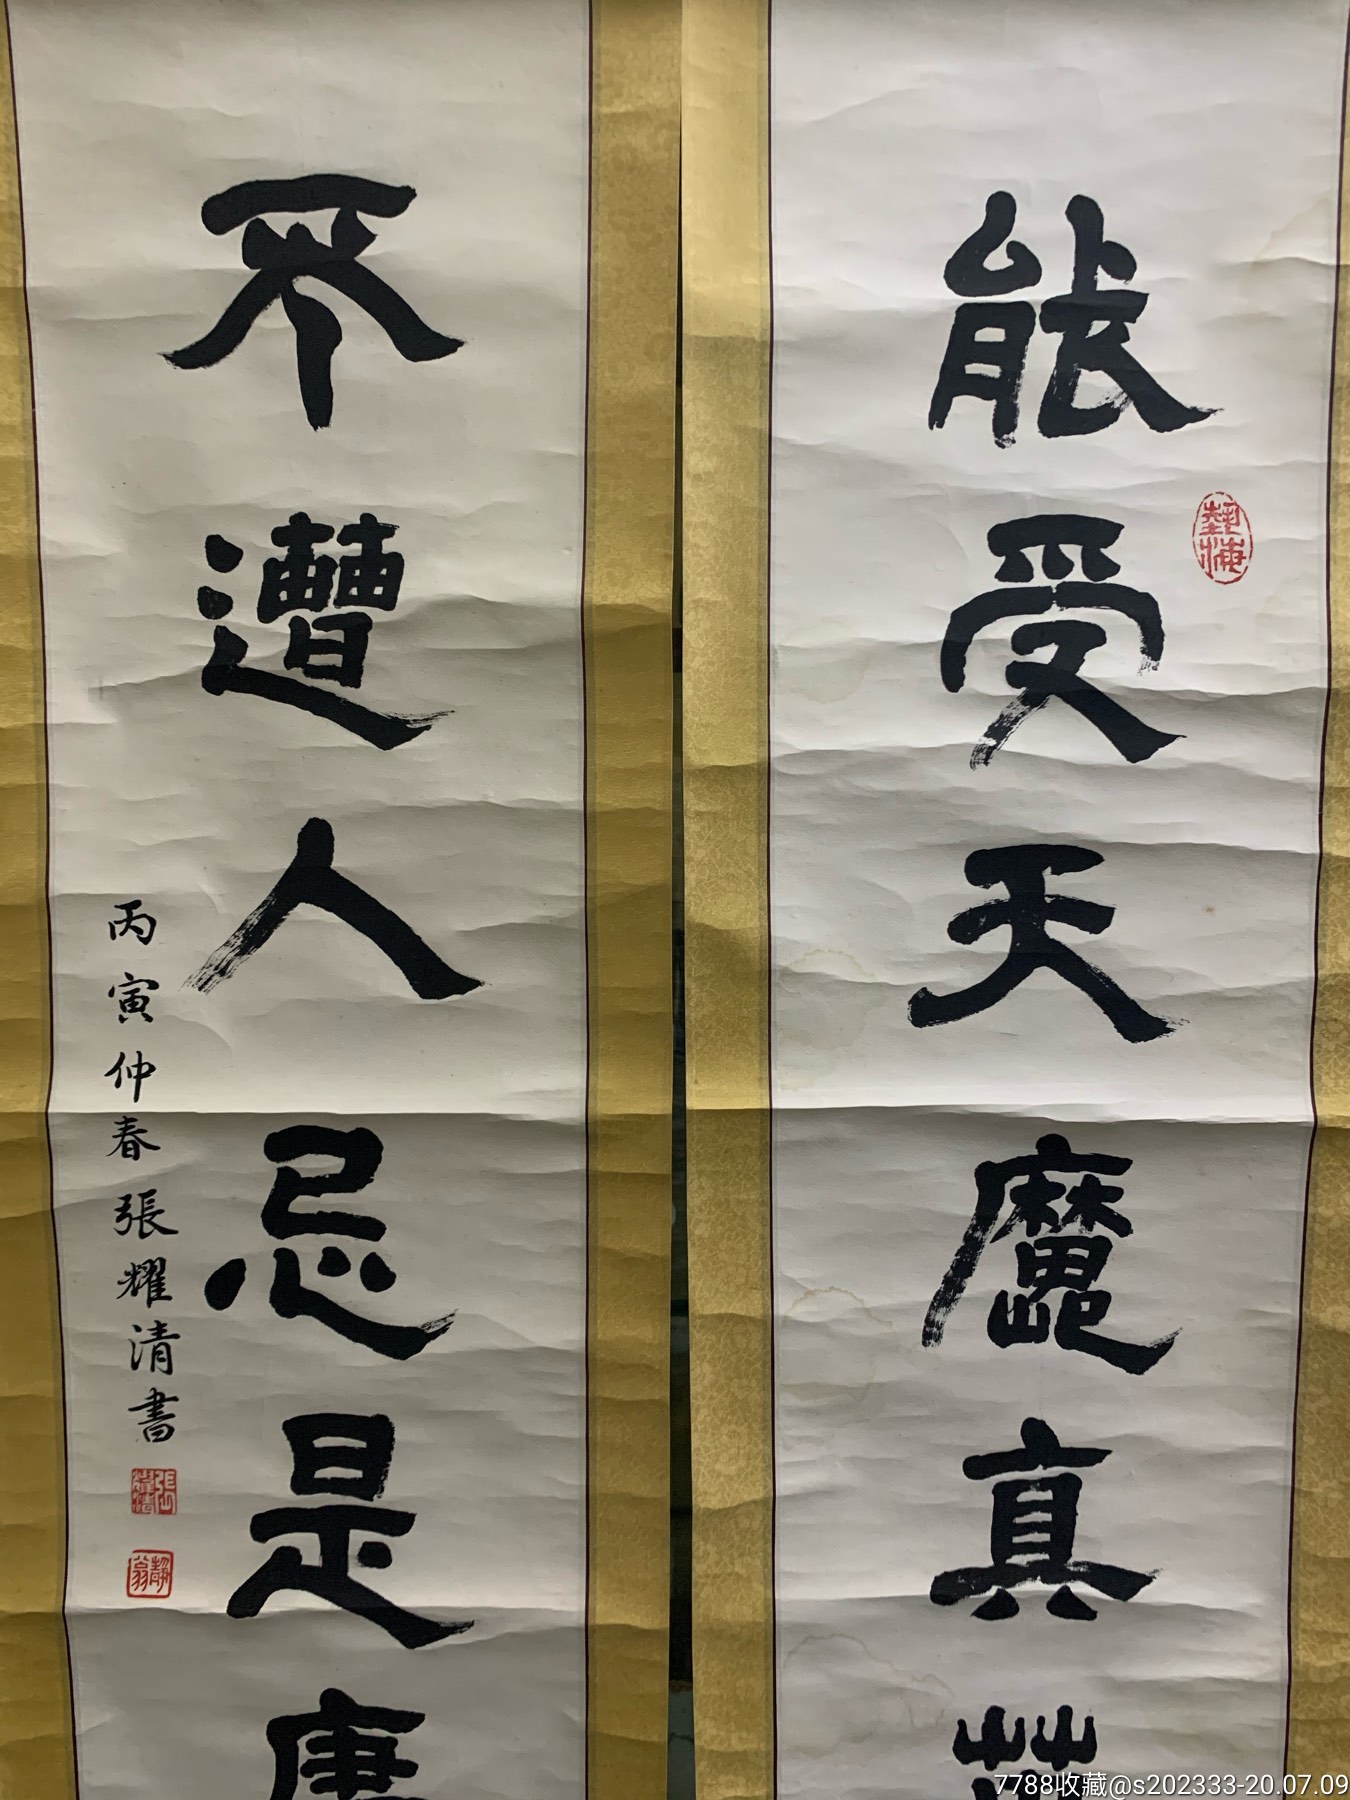 能受天磨真
不遭人忌是
丙寅仲春張耀清書
7788收藏@s202333-20.07.09